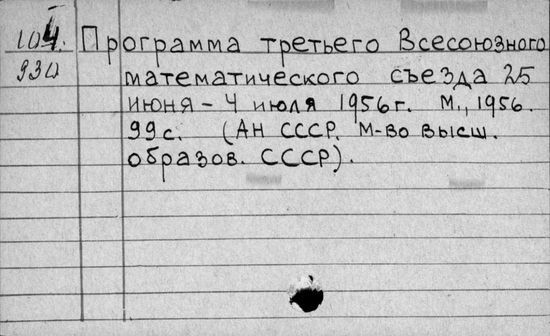 104. Программа третьего Всесоюзного
930 математического съезда 25
июня - 4 июля 1956 г. М., 1956.
99 с. (АН СССР. М-во высш.
образов. СССР).